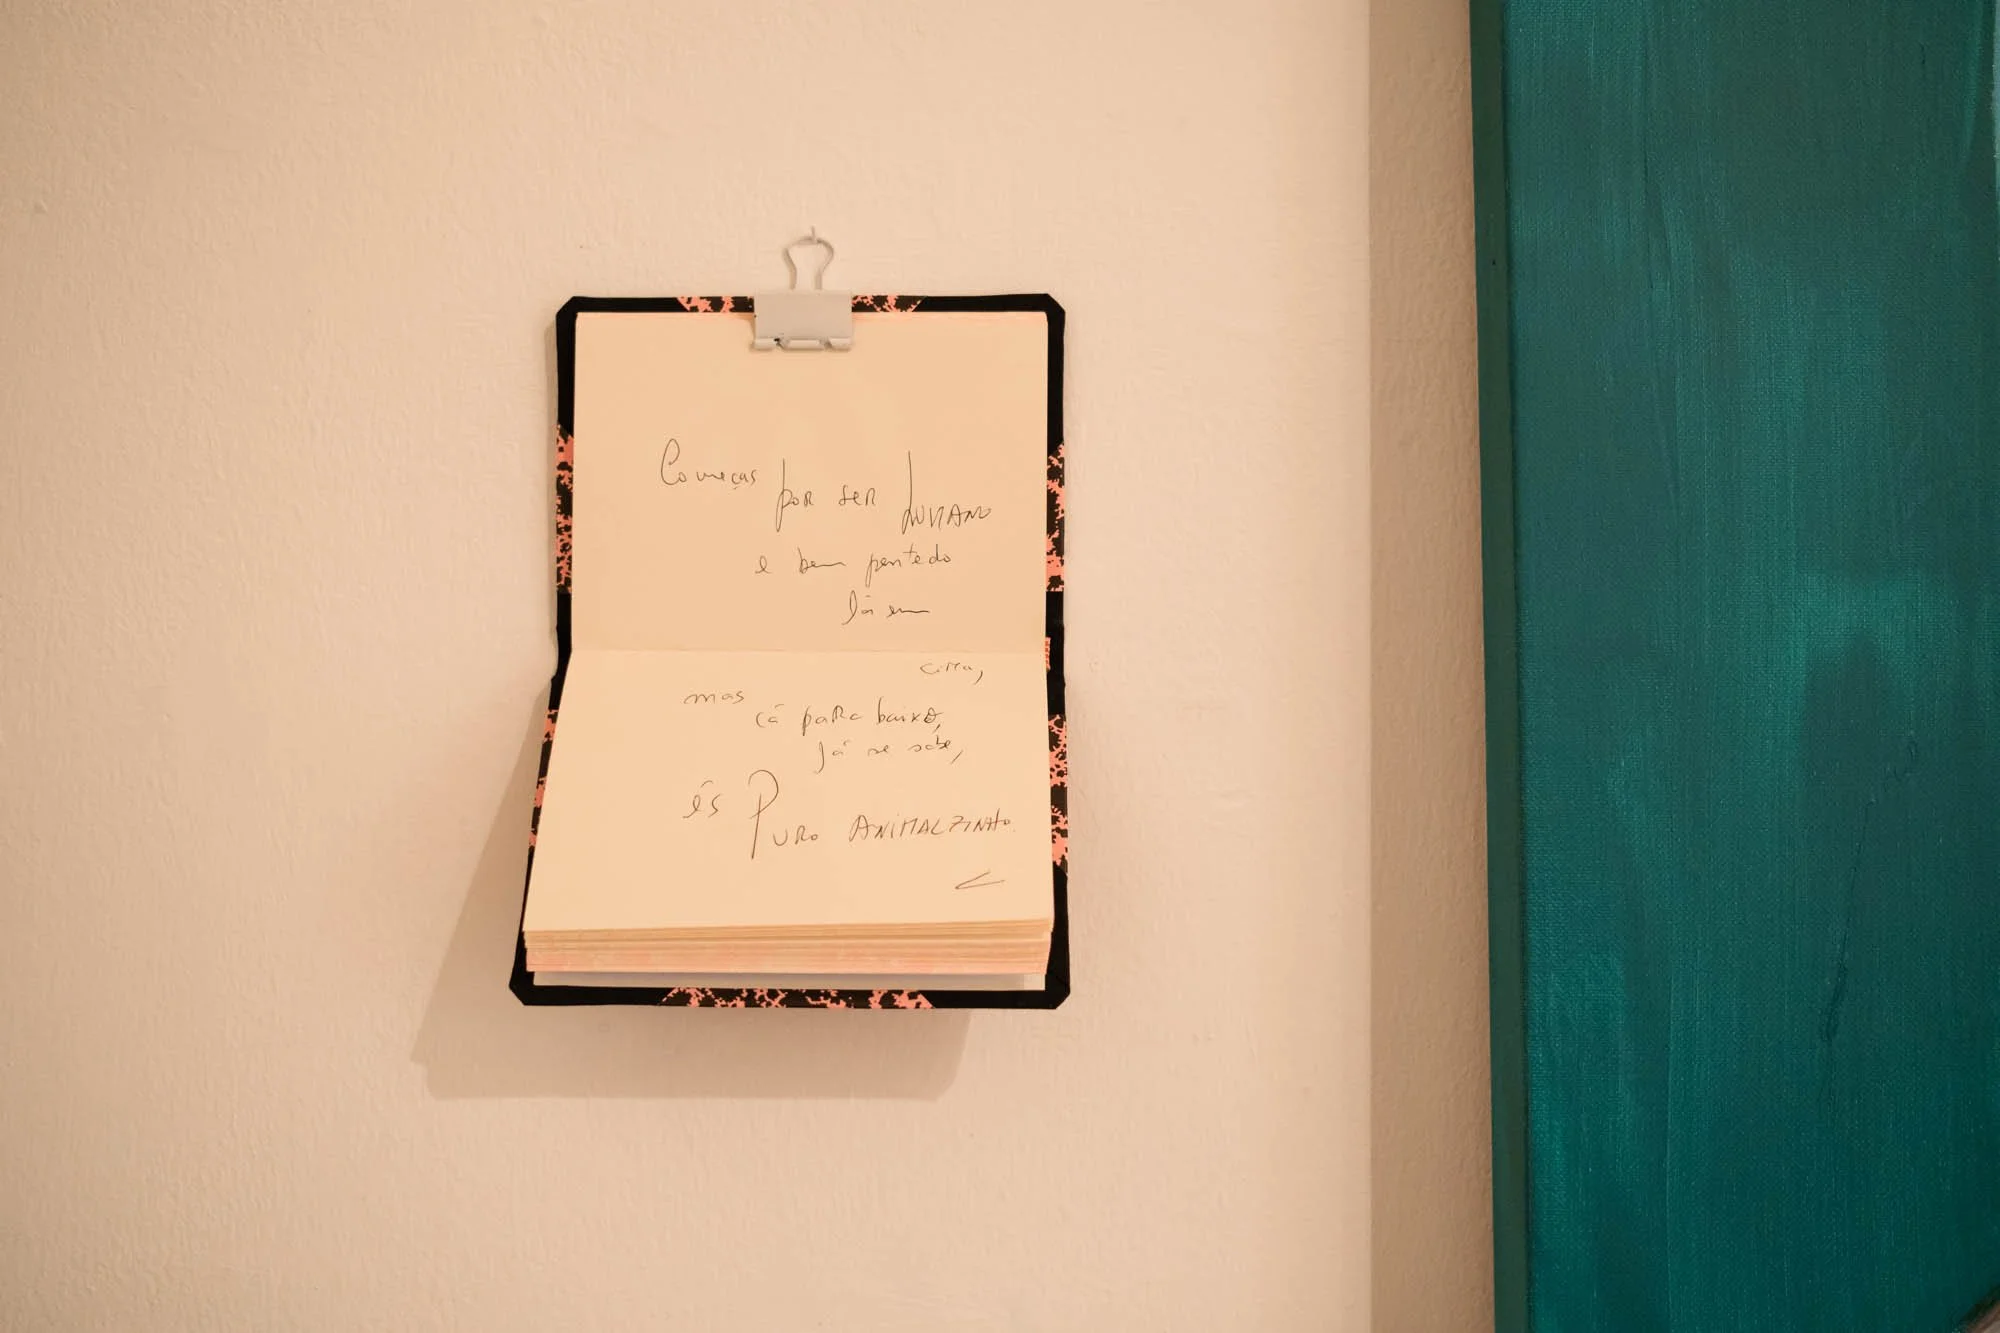 Começas
por ser humano
e bem penteado
lá em
cima,
mas
cá para baixo,
já se sabe,
és Puro ANIMALZINHO.